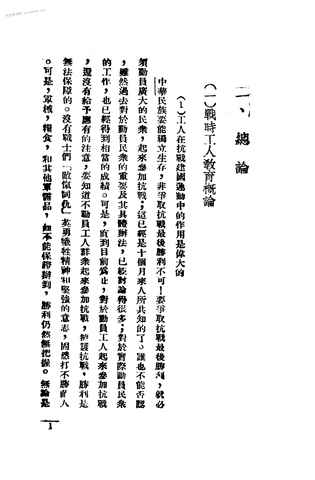 一、總論
(一)戰時工人教育概論
(1)工人在抗戰建國運動中的作用是偉大的
中華民族要能獨立生存，非爭取抗戰最後勝利不可！要爭取抗戰最後勝利，就必
須動員廣大的民衆，起來參加抗戰；這已經是十個月來人所共知的了。誰也不能否認
，雖然過去對於動員民衆的重要及其具體辦法，已經討論得很多；對於實際動員民衆
的工作，也已經得到相當的成績。可是，直到目前爲止，對於動員工人起來參加抗戰
，還沒有給予應有的注意，要知道不動員工人群衆起來參加抗戰，擁護抗戰，勝利是
無法保障的。沒有戰士們「敵愾同仇」英勇犧牲精神和堅強的意志，固然打不勝敵人
。可是，軍械，糧食，和其他軍需品，如不能保障辦到，勝利仍然無把握。無論是
1